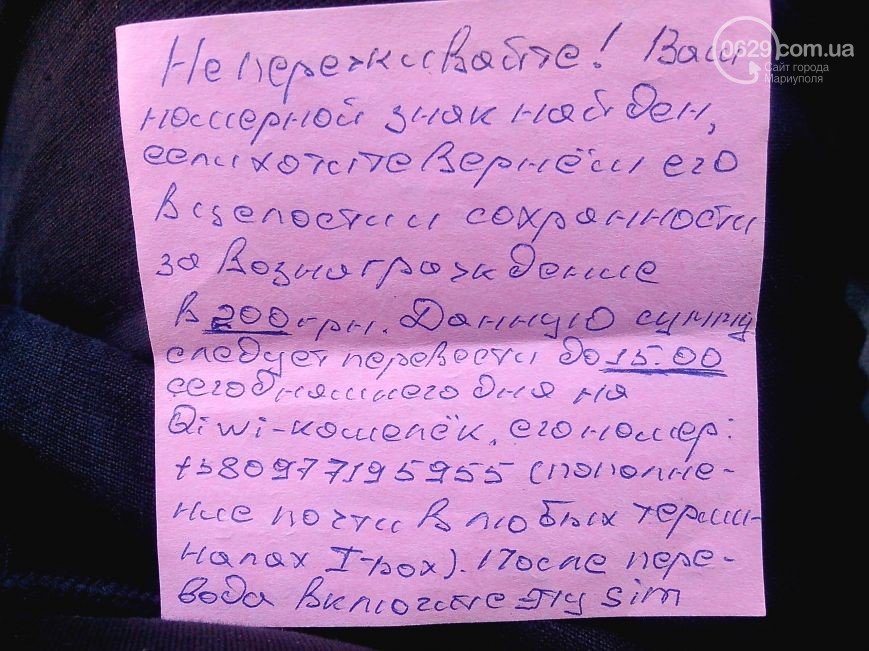 0629.com.ua
Сайт города
Мариуполя
Не переживайте! Ваш
номерной знак найден,
если хотите вернём его
в целости и сохранности
за вознаграждение
в 200 грн. Данную сумму
следует перевости до 15.00
сегодняшнего дня на
Qiwi-кошелёк, его номер:
+380977195955 (пополне-
ние почти в любых терми-
налах I-box). После пере-
вода включите эту sim